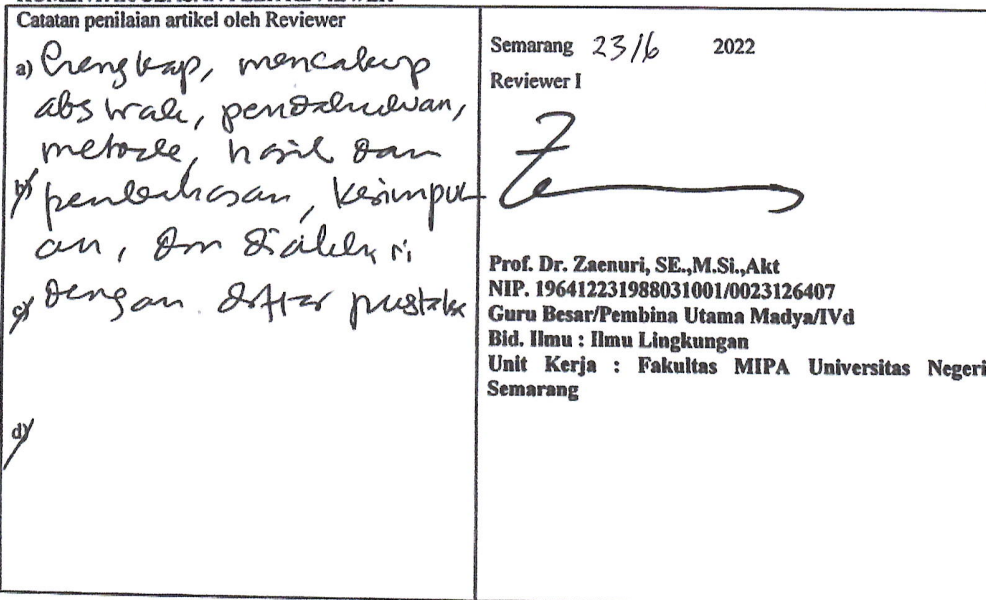 Catatan penilaian artikel oleh Reviewer
a) Lengkap, mencakup
abstrak, pendahuluan,
metode, hasil dan
b) pembahasan, kesimpul-
an, dan diakhiri
c) dengan daftar pustaka
d)
Semarang 23/6 2022
Reviewer I
Prof. Dr. Zaenuri, SE.,M.Si.,Akt
NIP. 196412231988031001/0023126407
Guru Besar/Pembina Utama Madya/IVd
Bid. Ilmu : Ilmu Lingkungan
Unit Kerja : Fakultas MIPA Universitas Negeri
Semarang